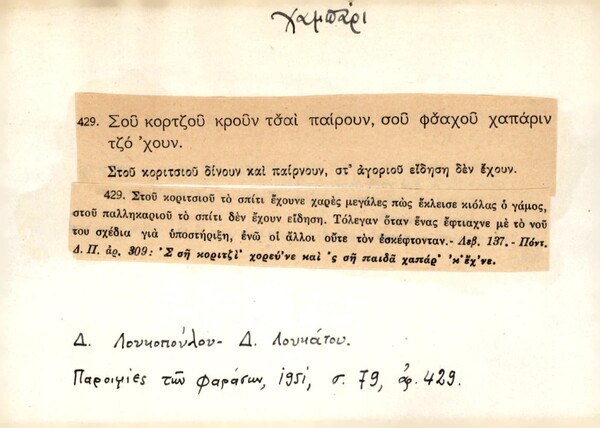 χαμπάρι
429. Σοῦ κορτζοῦ κροῦν τσ̌αὶ παίρουν, σοῦ φσ̌αχοῦ χαπάριν
τζό ᾿χουν.
Στοῦ κοριτσιοῦ δίνουν καὶ παίρνουν, στ᾿ ἀγοριοῦ εἴδηση δὲν ἔχουν.
429. Στοῦ κοριτσιοῦ τὸ σπίτι ἔχουνε χαρὲς μεγάλες πὼς ἔκλεισε κιόλας ὁ γάμος,
στοῦ παλληκαριοῦ τὸ σπίτι δὲν ἔχουν εἴδηση. Τόλεγαν ὅταν ἕνας ἔφτιαχνε μὲ τὸ νοῦ
του σχέδια γιὰ ὑποστήριξη, ἐνῶ οἱ ἄλλοι οὔτε τὸν ἐσκέφτονταν.- Λεβ. 137.- Πόντ.
Δ. Π. ἀρ. 309: ᾿Σ σῆ κοριτζὶ᾿ χορεύ᾿νε καὶ ᾿ς σῆ παιδᾶ χαπάρ᾿ ᾿κ᾿ ἔχ᾿νε.
Δ. Λουκοπούλου - Δ. Λουκάτου.
Παροιμίες τῶν Φαράσων, 1951, σ. 79, ἀρ. 429.